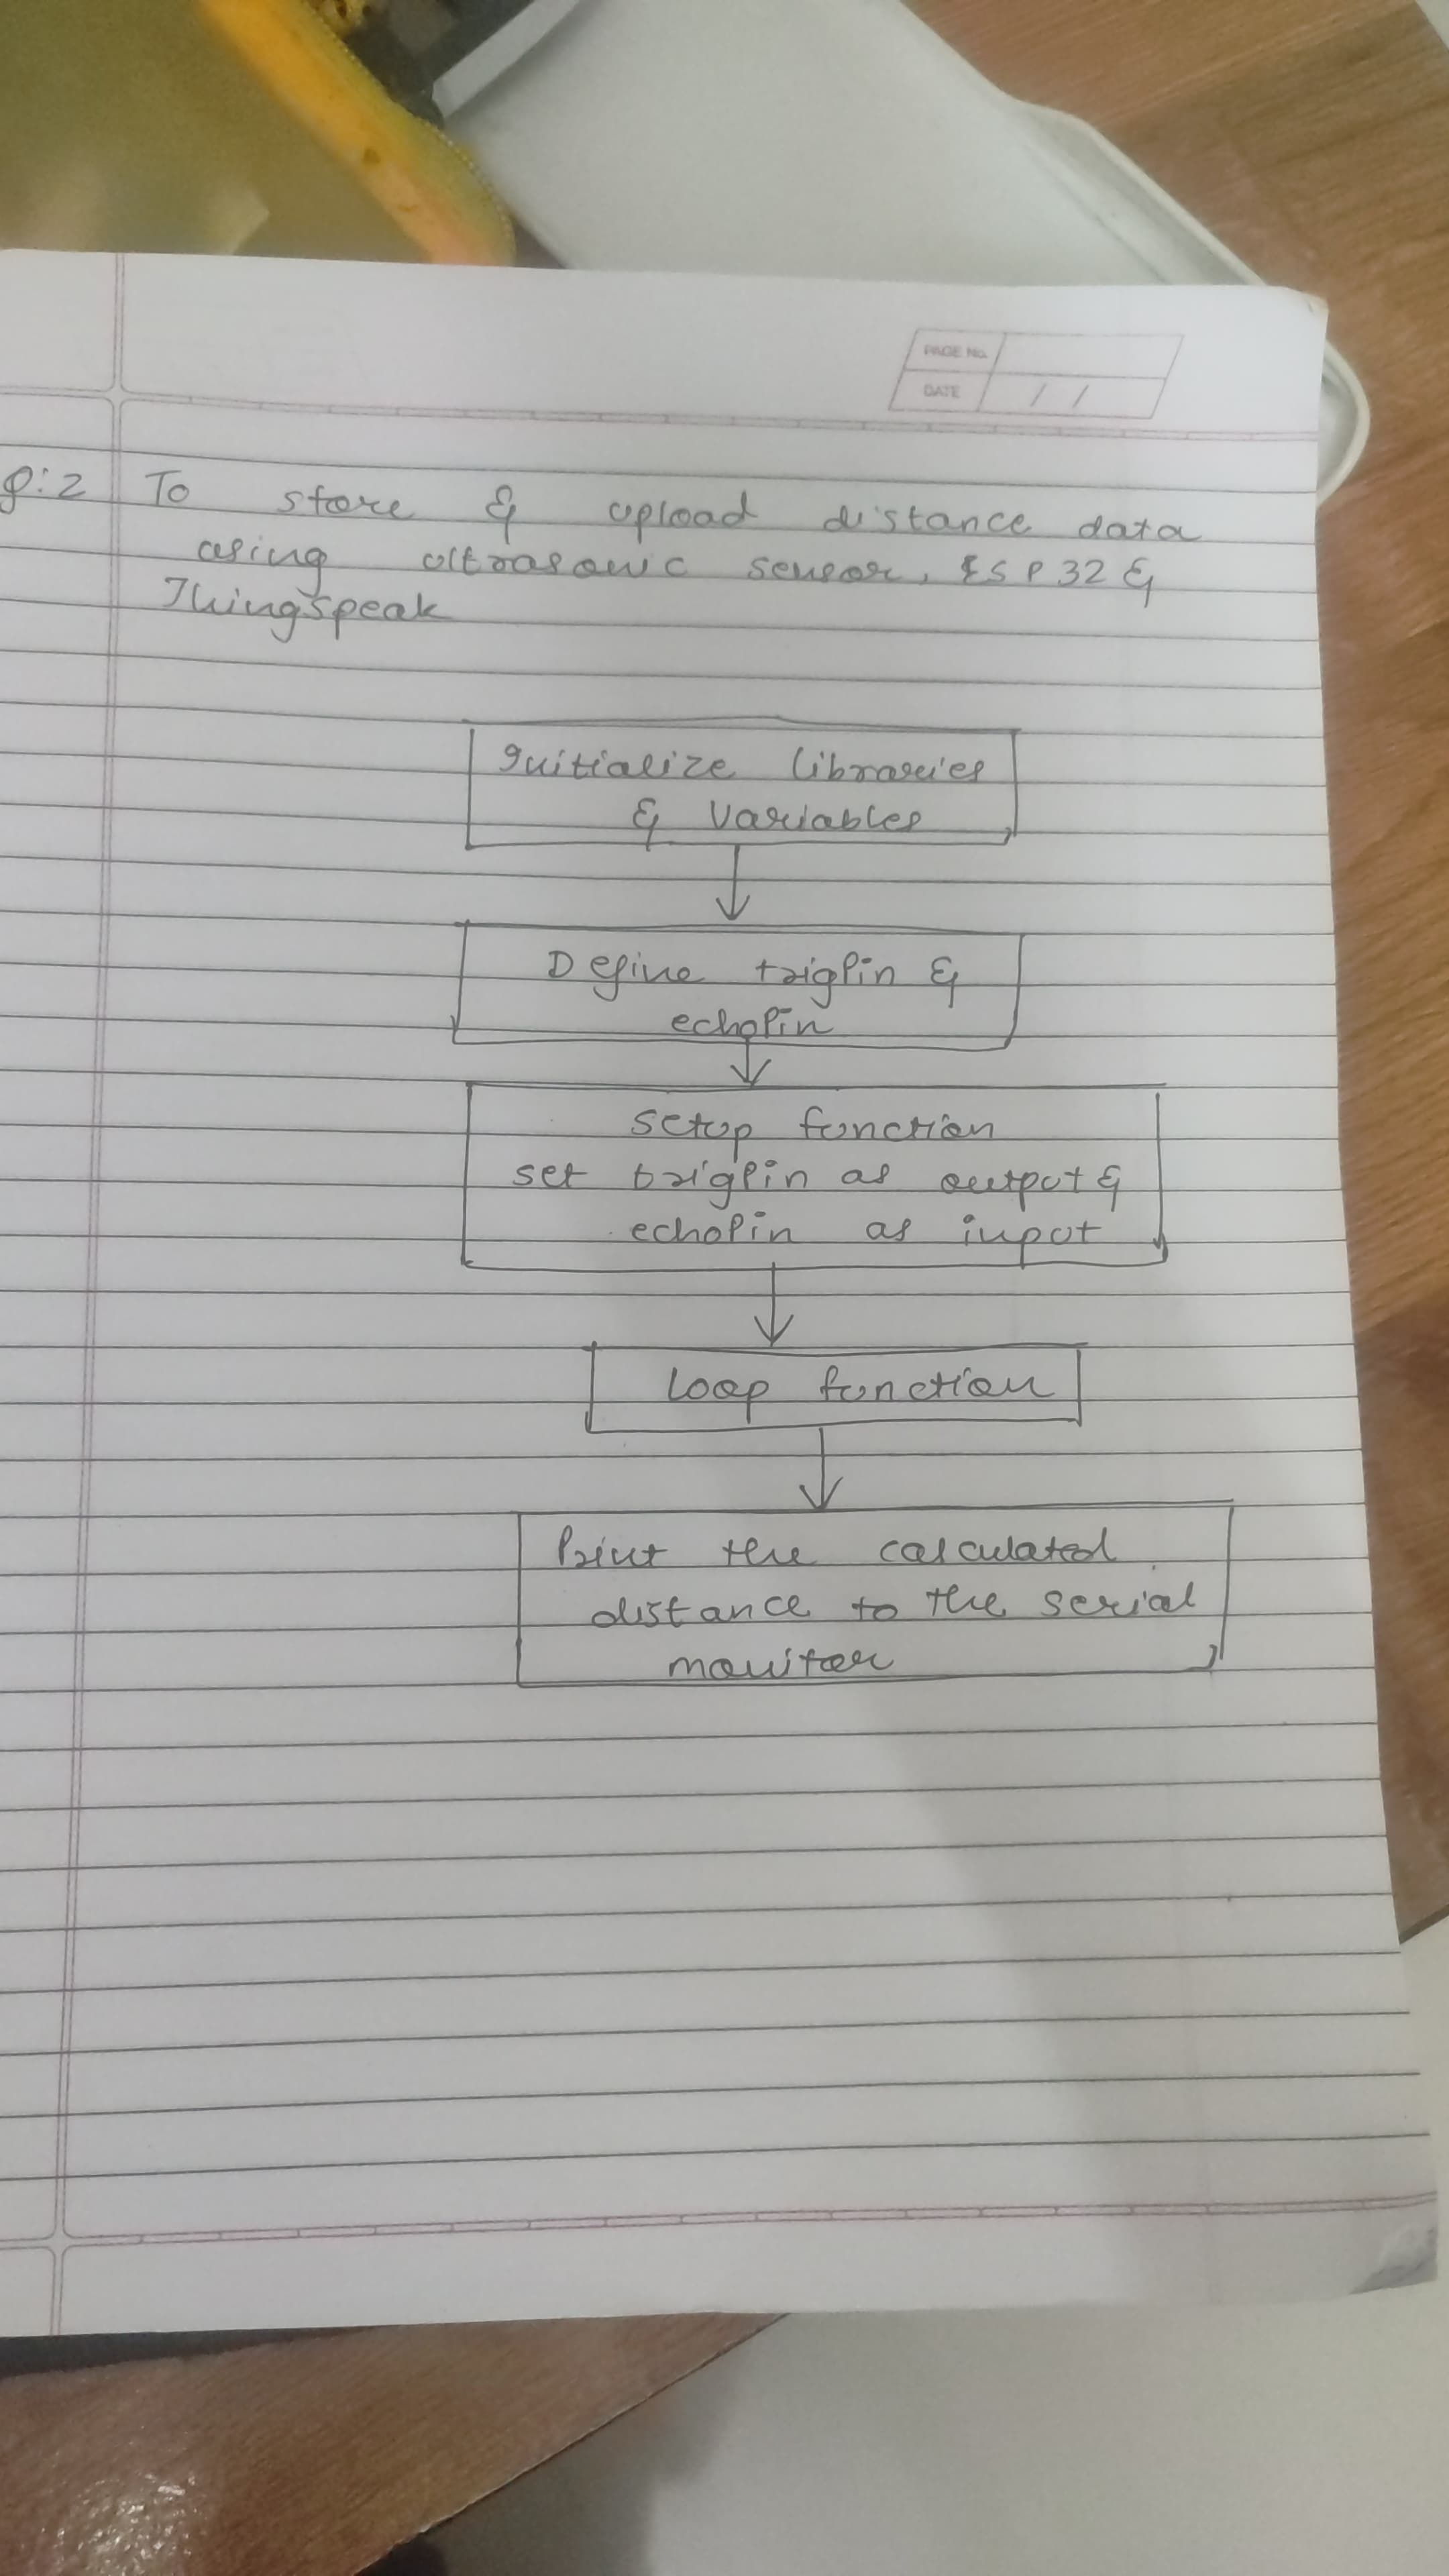 PAGE No.
DATE / /
p:2 To store & upload distance data
using ultrasonic sensor, ESP32 &
ThingSpeak
Initialize libraries
& variables
Define trigPin &
echoPin
setup function
set trigPin as output &
echoPin as input
loop function
Print the calculated
distance to the serial
monitor